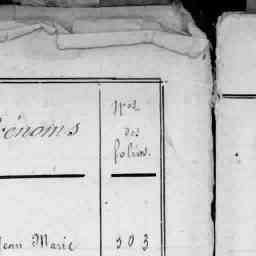 énoms
Nos
des
folios.
Jean Marie 303